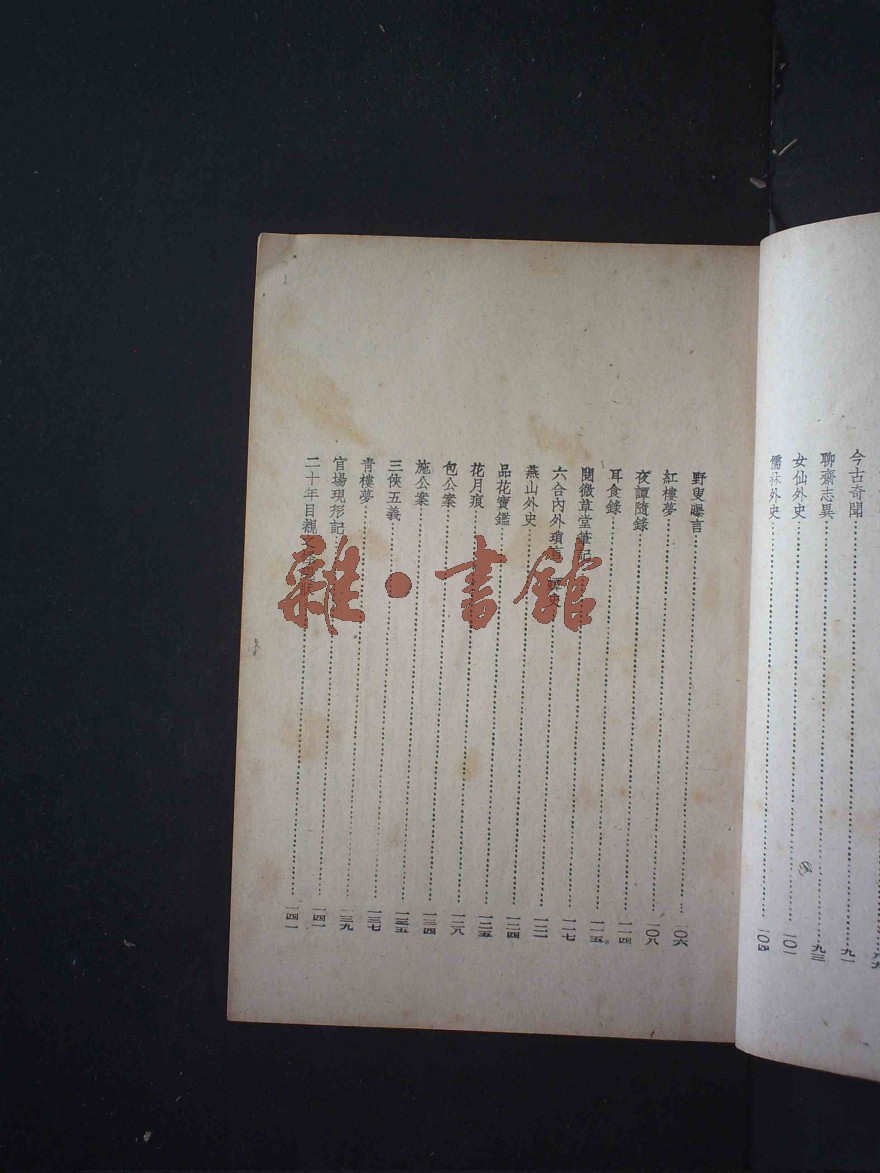 今古奇聞……九一
聊齋志異……九三
女仙外史……一〇一
儒林外史……一〇四
野叟曝言……一〇六
紅樓夢……一〇八
夜譚隨錄……一一四
耳食錄……一一五
閱微草堂筆記……一一七
六合內外瑣 史……一二一
燕山外史……一二四
品花寶鑑……一二五
花月痕……一二八
包公案……一三四
施公案……一三五
三俠五義……一三七
青樓夢……一三九
官場現形記……一四一
二十年目覩……一四一
雜·書館